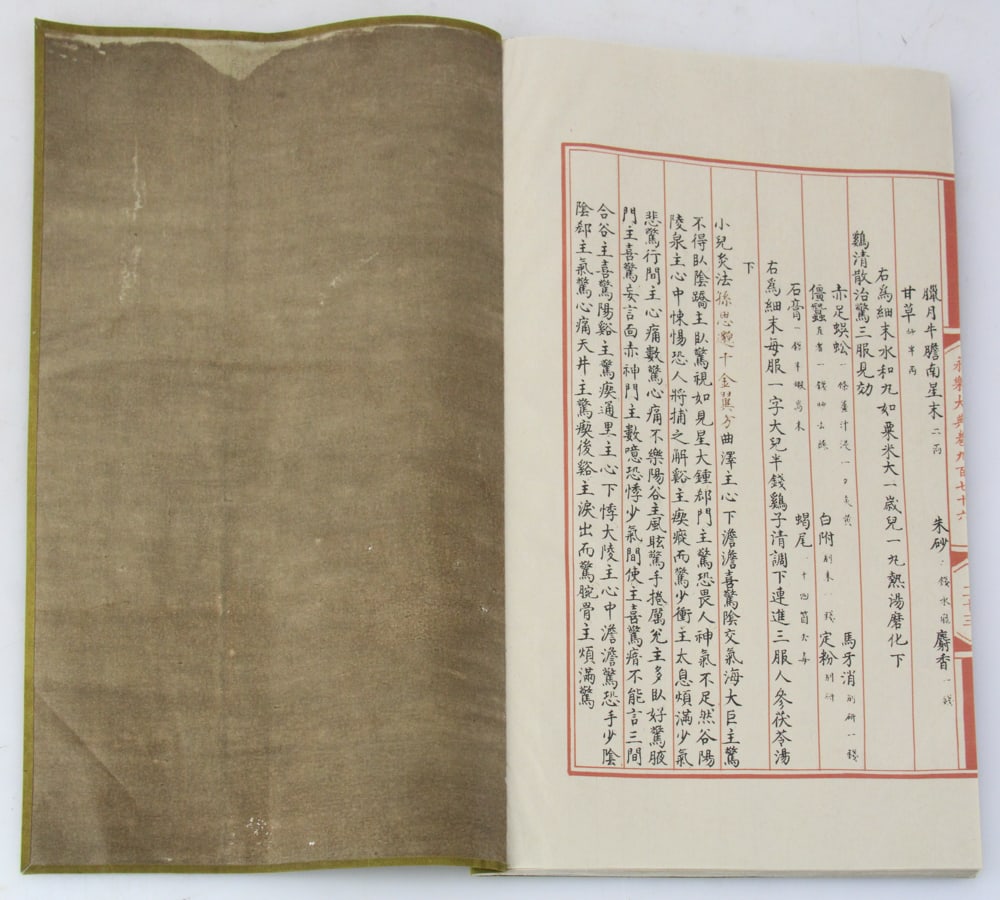 永樂大典卷九百七十六
二十三
臘月牛膽南星末二兩 朱砂一錢水飛 麝香一錢
甘草炒半兩
右為細末水和丸如粟米大一歲兒一丸熱湯磨化下
鷄清散治驚三服見効
赤足蜈蚣一條薑汁浸一日炙黃 馬牙消別研一錢
僵蠶直者一錢炒去絲 白附別末一錢 定粉別研
石膏一錢半煅為末 蝎尾二十四箇
右為細末每服一字大兒半錢鷄子清調下連進三服人參茯苓湯
下
小兒灸法孫思邈千金翼方曲澤主心下澹澹喜驚陰交氣海大巨主驚
不得臥陰蹻主臥驚視如見星大鍾郄門主驚恐畏人神氣不足然谷陽
陵泉主心中怵惕恐人將捕之解谿主瘈瘲而驚少衝主太息煩滿少氣
悲驚行間主心痛數驚心痛不樂陽谷主風眩驚手捲厲兌主多臥好驚腋
門主喜驚妄言面赤神門主數噫恐悸少氣間使主喜驚瘖不能言三間
合谷主喜驚陽谿主驚瘈通里主心下悸大陵主心中澹澹驚恐手少陰
陰郄主氣驚心痛天井主驚瘈後谿主淚出而驚腕骨主煩滿驚